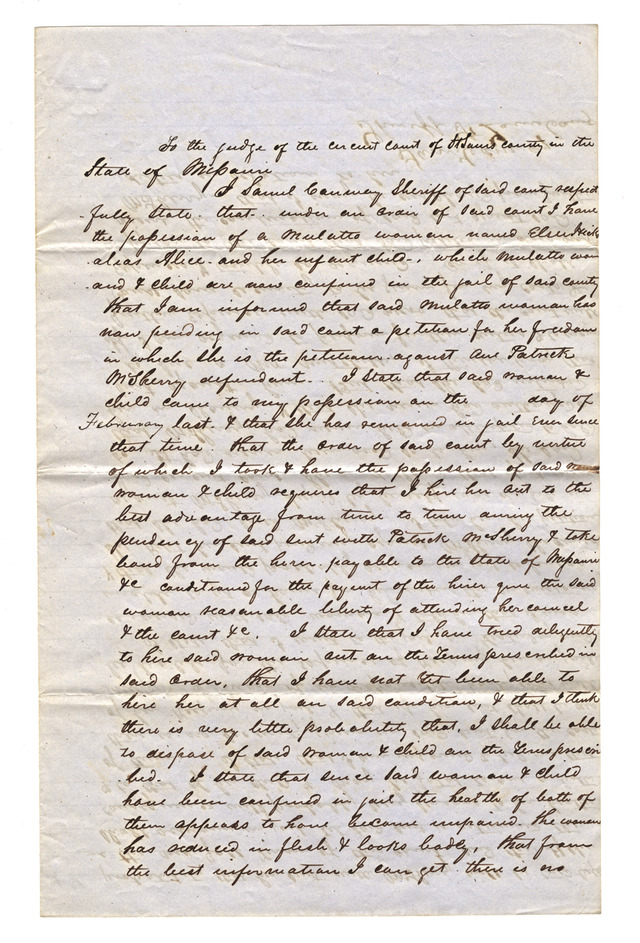 To the judge of the circuit court of St Louis county in the
State of Missouri
I Samuel Conway Sheriff of said county respect
-fully state that under an order of said court I have
the possession of a mulatto woman named
alias Alice and her infant child, which mulatto wom
and & child are now confined in the jail of said county
that I am informed that said mulatto woman has
now pending in said court a petition for her freedom
in which she is the petitioner against one Patrick
McSherry defendant. I state that said woman &
child came to my possession on the day of
February last & that she has remained in jail ever since
that time that the order of said court by virtue
of which I took & have the possession of said
woman & child requires that I hire her out to the
best advantage from time to time during the
pendency of said suit with Patrick McSherry & take
bond from the hirer payable to the State of Missouri
&c conditioned for the payment of the hire, give the said
woman reasonable liberty of attending her councel
& the court &c. I state that I have tried diligently
to hire said woman out on the terms prescribed in
said order, that I have not yet been able to
hire her at all on said condition, & that I think
there is very little probability that, I shall be able
to dispose of said woman & child on the terms prescri
bed. I state that since said woman & child
have been confined in jail the health of both of
them appears to have become impaired. the woman
has reduced in flesh & looks badly, that from
the best information I can get there is no